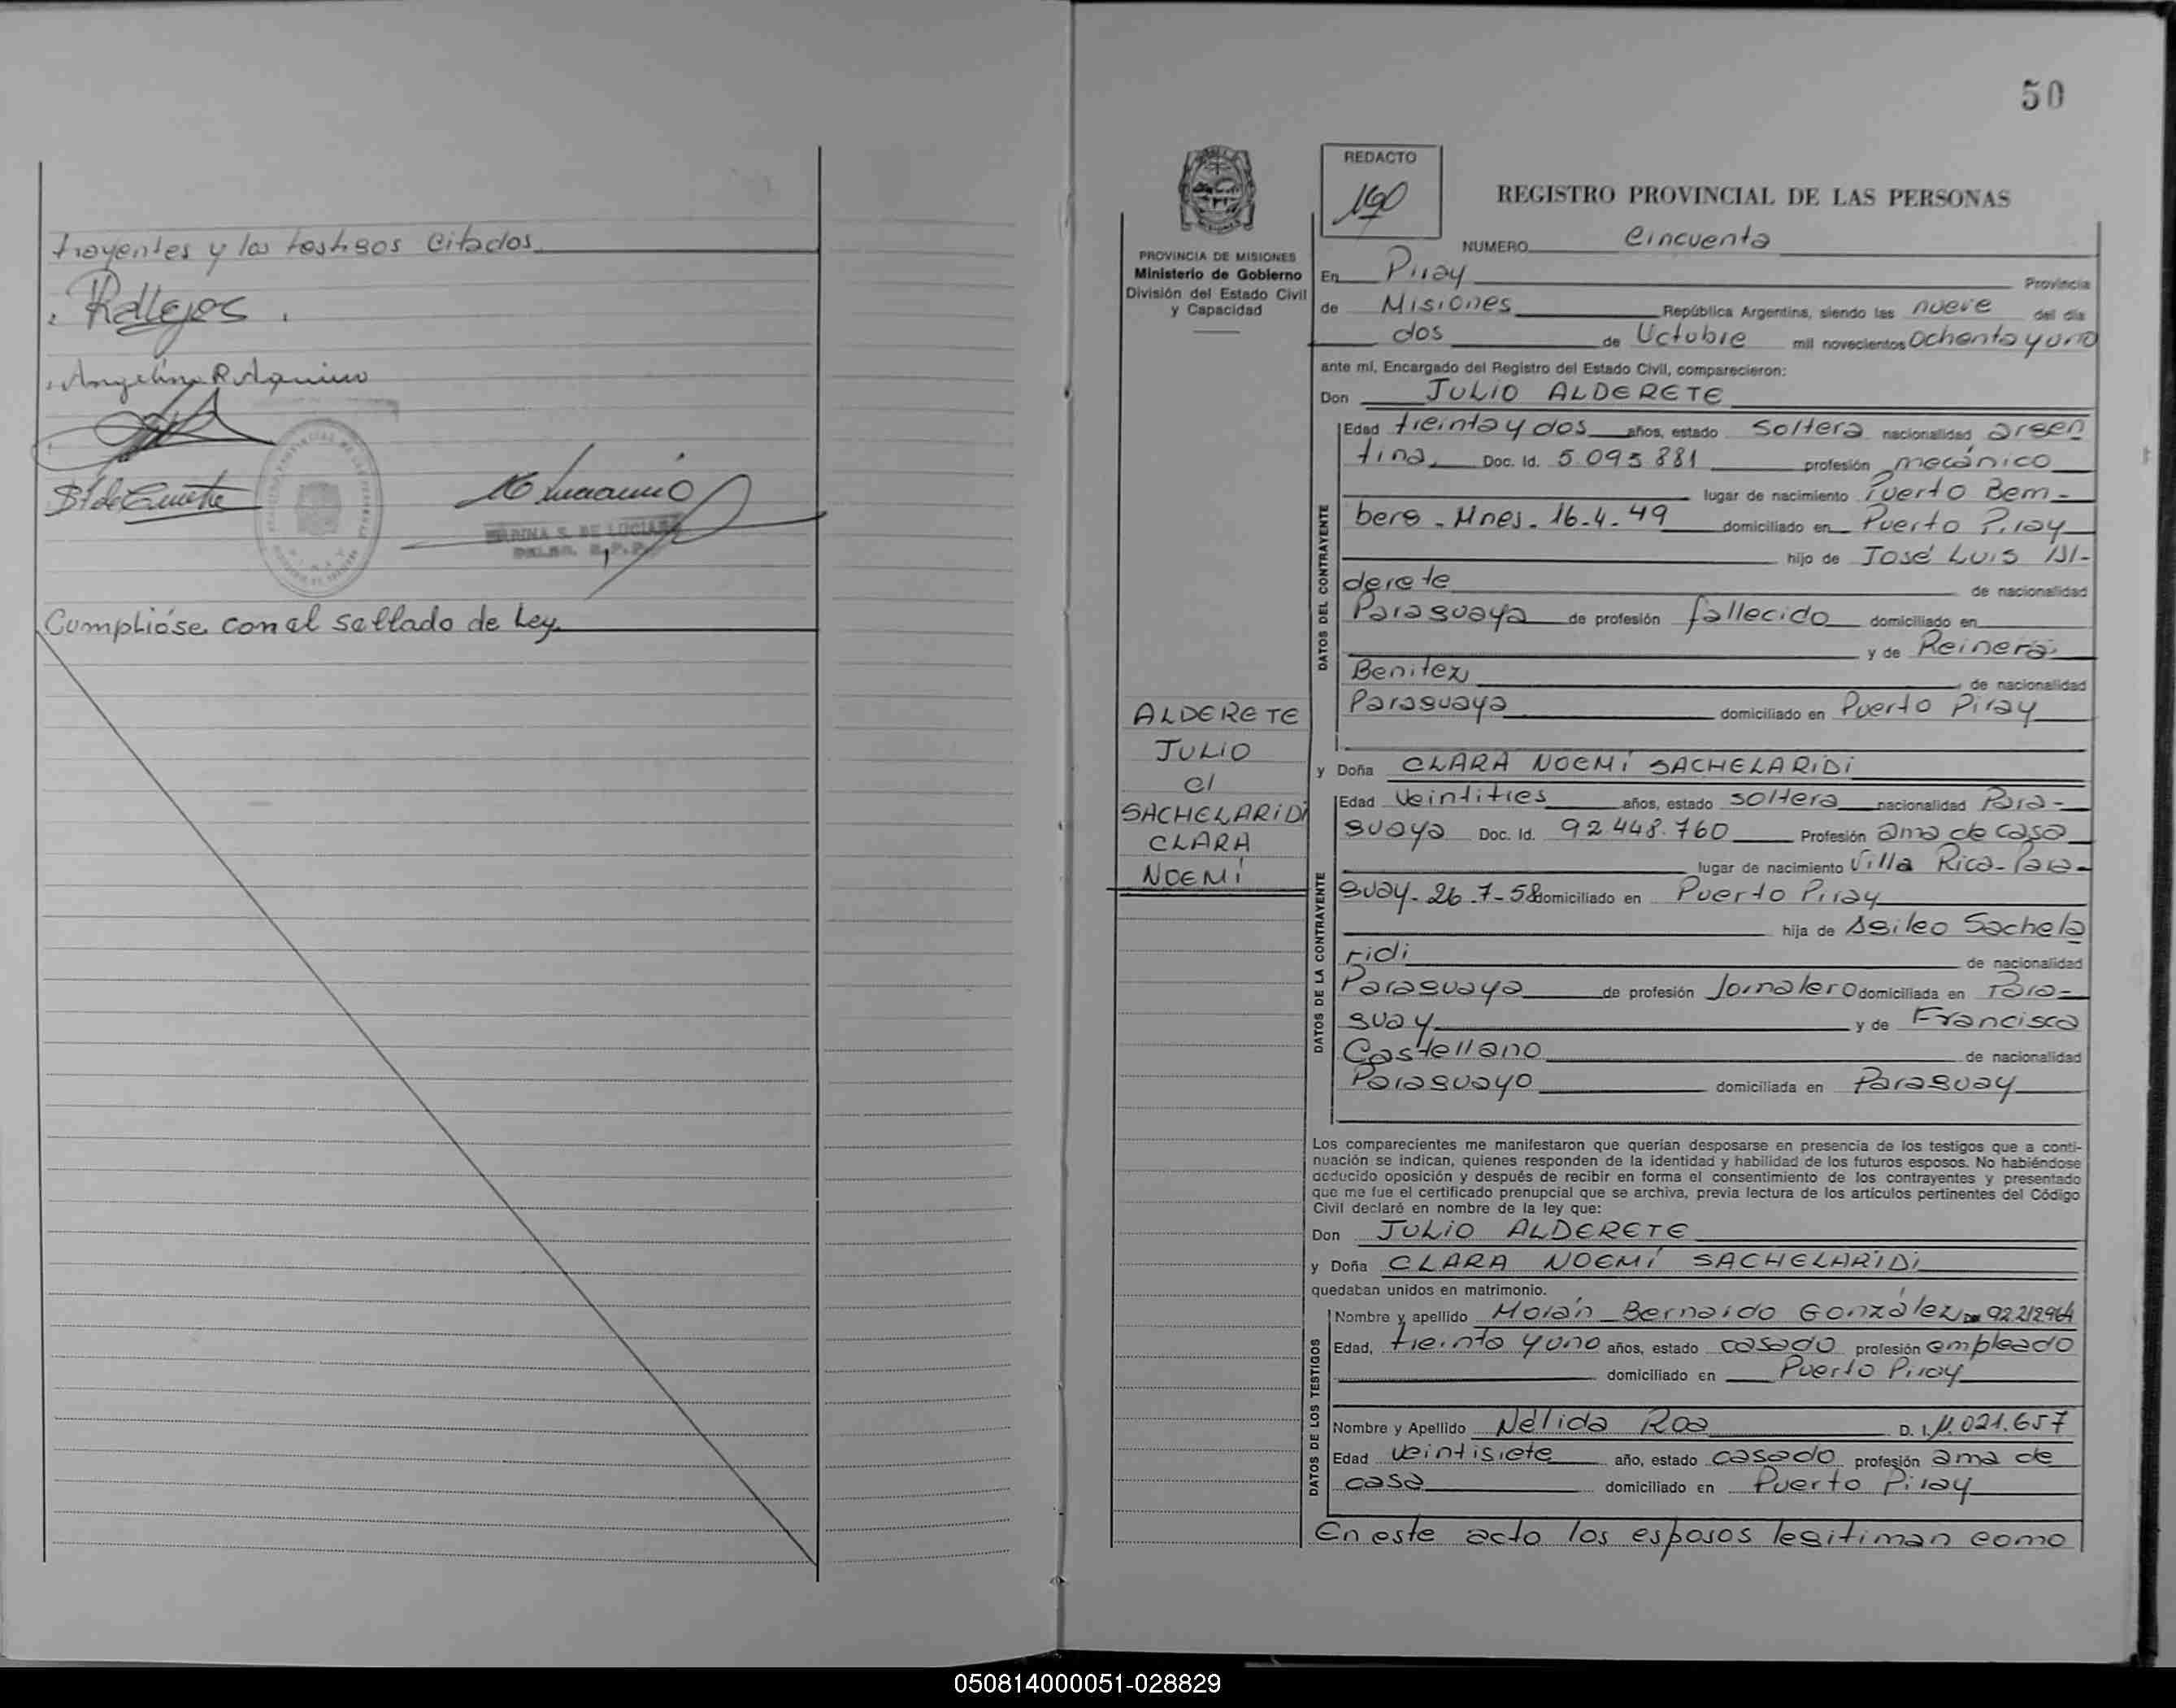 trayentes y los testigos citados
Angelina R Aquino
MARINA S. DE LUCIANO
Cumplióse con el sellado de Ley
50
REDACTO
190
REGISTRO PROVINCIAL DE LAS PERSONAS
NUMERO Cincuenta
PROVINCIA DE MISIONES
Ministerio de Gobierno
División del Estado Civil
y Capacidad
En Piray Provincia
de Misiones República Argentina, siendo las nueve del día
dos de Octubre mil novecientos Ochenta y uno
ante mí, Encargado del Registro del Estado Civil, comparecieron:
Don JULIO ALDERETE
DATOS DEL CONTRAYENTE
Edad treinta y dos años, estado Soltera nacionalidad argen
tina Doc. Id. 5.095.881 profesión mecánico
lugar de nacimiento Puerto Bem-
berg - Mnes. 16-4-49 domiciliado en Puerto Piray
hijo de José Luis Al-
derete de nacionalidad
Paraguaya de profesión fallecido domiciliado en
y de Reinera
Benitez de nacionalidad
Paraguaya domiciliado en Puerto Piray
ALDERETE
JULIO
c/
SACHELARIDI
CLARA
NOEMÍ
y Doña CLARA NOEMÍ SACHELARIDI
DATOS DE LA CONTRAYENTE
Edad Veintitres años, estado soltera nacionalidad Para-
guaya Doc. Id. 92.448.760 Profesión ama de casa
lugar de nacimiento Villa Rica-Para-
guay-26-7-58 domiciliado en Puerto Piray
hija de Agileo Sachela
ridi de nacionalidad
Paraguaya de profesión Jornalero domiciliada en Para-
guay y de Francisca
Castellano de nacionalidad
Paraguayo domiciliada en Paraguay
Los comparecientes me manifestaron que querían desposarse en presencia de los testigos que a conti-
nuación se indican, quienes responden de la identidad y habilidad de los futuros esposos. No habiéndose
deducido oposición y después de recibir en forma el consentimiento de los contrayentes y presentado
que me fue el certificado prenupcial que se archiva, previa lectura de los artículos pertinentes del Código
Civil declaré en nombre de la ley que:
Don JULIO ALDERETE
y Doña CLARA NOEMÍ SACHELARIDI
quedaban unidos en matrimonio.
DATOS DE LOS TESTIGOS
Nombre y apellido Morán Bernardo González 92.212964
Edad, treinta y uno años, estado casado profesión empleado
domiciliado en Puerto Piray
Nombre y Apellido Nélida Roa D. I. 11.021.657
Edad veintisiete año, estado casado profesión ama de
casa domiciliado en Puerto Piray
En este acto los esposos legitiman como
050814000051-028829